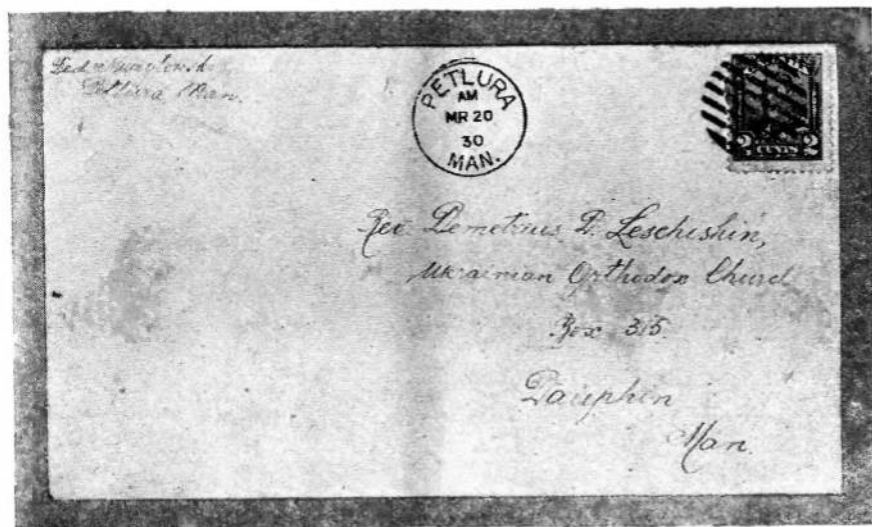 Petlura Man.
PETLURA
AM
MR 20
30
MAN.
2 CENTS 2
Rev. Demetrius D. Leschishin,
Ukrainian Orthodox Church
Box 315
Dauphin
Man.